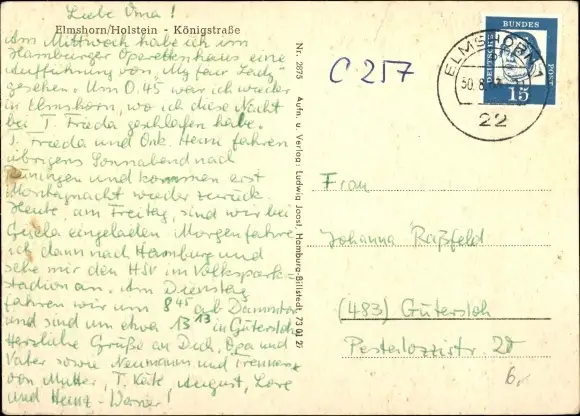 Liebe Oma!
Elmshorn/Holstein - Königstraße
Am Mittwoch habe ich im
Hamburger Operettenhaus eine
Aufführung von "My fair Lady"
gesehen. Um 0.45 war ich wieder
in Elmshorn, wo ich diese Nacht
bei T. Frieda geschlafen habe.
T. Frieda und Onk. Heini fahren
übrigens Sonnabend nach
und kommen erst
Montagnacht wieder zurück.
Heute, am Freitag, sind wir bei
Gisela eingeladen. Morgen fahre
ich dann nach Hamburg und
sehe mir den HSV im Volkspark=
stadion an. Am Dienstag
fahren wir um 8 45 ab Dammtor
und sind um etwa 13 13 in Gütersloh.
Herzliche Grüße an Dich, Opa und
Vater sowie Neumanns und
von Mutter, T. Käte, August, Lore
und Heinz-Werner!
Nr. 2875 Aufn. u. Verlag: Ludwig Joost, Hamburg-Billstedt, 73 01 27
C 257
ELMSHORN 1
22
DEUTSCHE
BUNDES
POST
15
Frau
Johanna Raßfeld
(483) Gütersloh
Pestalozzistr. 20
6,-